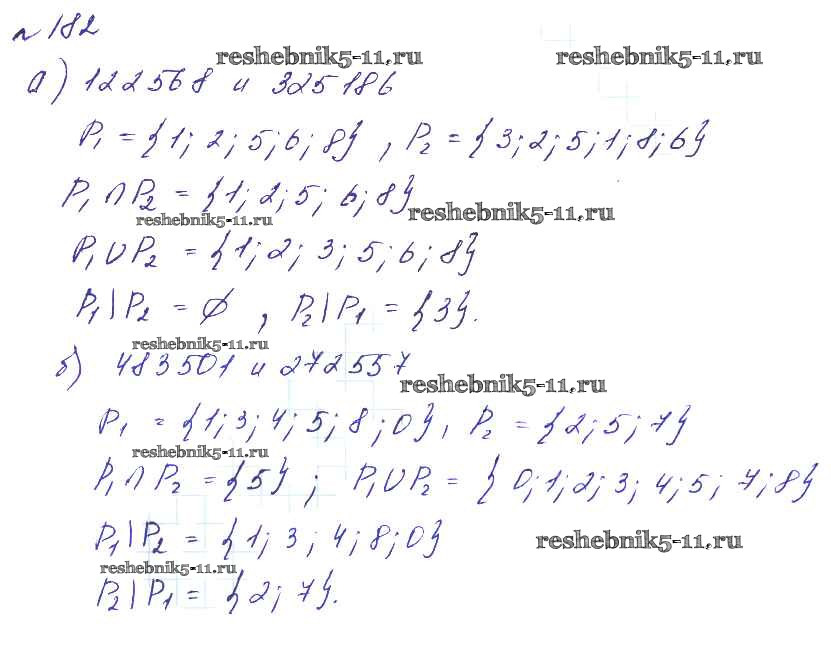 №182
reshebnik5-11.ru reshebnik5-11.ru
а) 122568 и 325186
P₁ = {1; 2; 5; 6; 8}, P₂ = {3; 2; 5; 1; 8; 6}
P₁∩P₂ = {1; 2; 5; 6; 8}
reshebnik5-11.ru reshebnik5-11.ru
P₁∪P₂ = {1; 2; 3; 5; 6; 8}
P₁|P₂ = ∅, P₂|P₁ = {3}.
reshebnik5-11.ru
б) 483501 и 272557
reshebnik5-11.ru
P₁ = {1; 3; 4; 5; 8; 0}, P₂ = {2; 5; 7}
reshebnik5-11.ru
P₁∩P₂ = {5}; P₁∪P₂ = {0; 1; 2; 3; 4; 5; 7; 8}
P₁|P₂ = {1; 3; 4; 8; 0}
reshebnik5-11.ru
reshebnik5-11.ru
P₂|P₁ = {2; 7}.